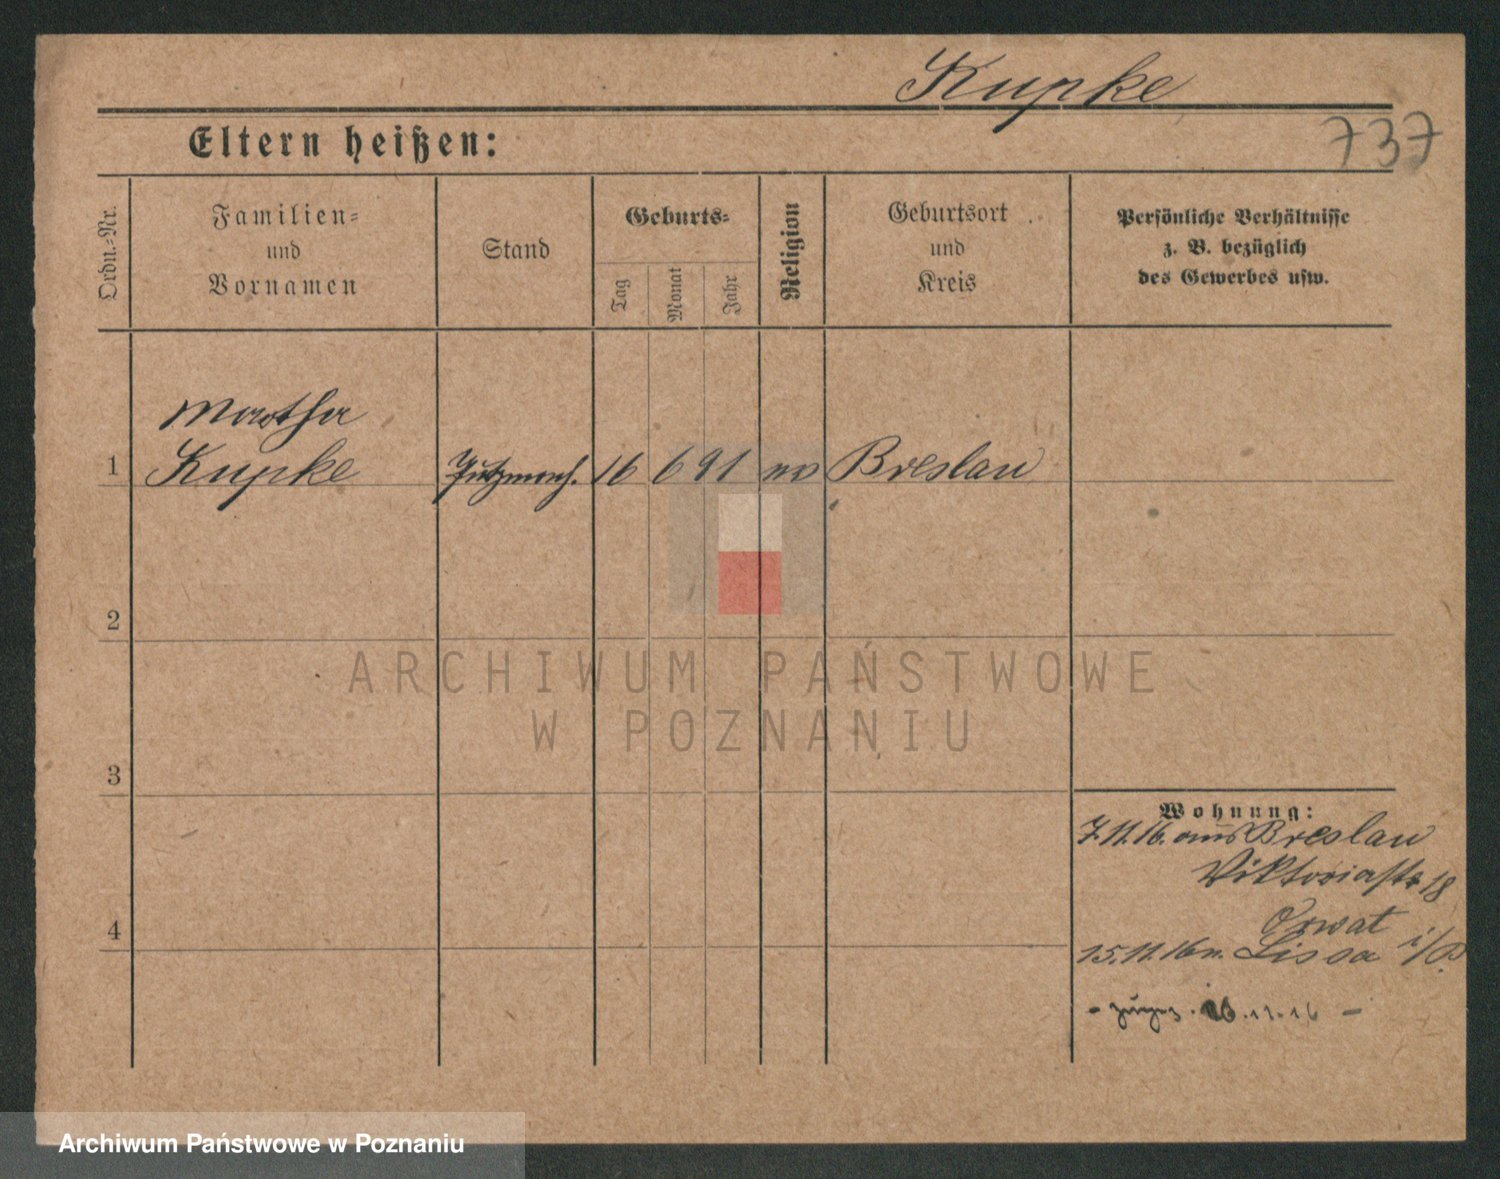 Kupke
737
Eltern heißen:
Ordn.-Nr.
Familien-
und
Vornamen
Stand
Geburts-
Tag
Monat
Jahr
Religion
Geburtsort
und
Kreis
Persönliche Verhältnisse
z. B. bezüglich
des Gewerbes usw.
Martha
1 Kupke Putzmach. 16 6 91 Breslau
2
ARCHIWUM PAŃSTWOWE
W POZNANIU
3
Wohnung:
7.11.16. aus Breslau
Viktoriastr 18
Orwat
4
15.11.16 n. Lissa i/P.
11.16
Archiwum Państwowe w Poznaniu